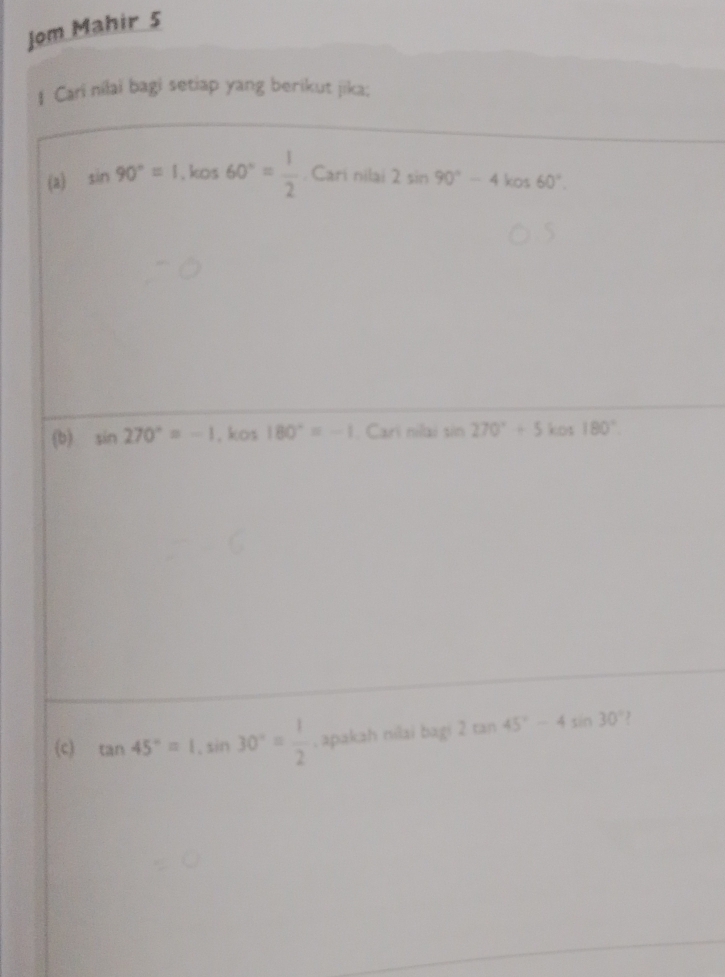 Jom Mahir 5
1 Cari nilai bagi setiap yang berikut jika;
(a) sin 90° = 1, kos 60° = 1/2. Cari nilai 2 sin 90° − 4 kos 60°.
0.5
= 0
(b) sin 270° = −1, kos 180° = −1. Cari nilai sin 270° + 5 kos 180°.
= -6
(c) tan 45° = 1, sin 30° = 1/2, apakah nilai bagi 2 tan 45° − 4 sin 30°?
= 0